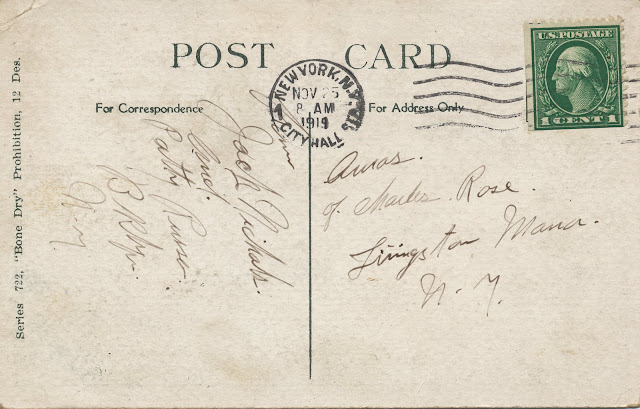 POST CARD
For Correspondence
For Address Only
NEW YORK, N.Y. STA.
NOV 25
8 AM
1919
CITY HALL
U.S. POSTAGE
1 CENT 1
From
Jack Nichols.
And.
Patty Russo.
BKlyn.
N-Y
Amos.
of Charles Rose.
Livingston Manor.
N. Y.
Series 722, "Bone Dry" Prohibition, 12 Des.